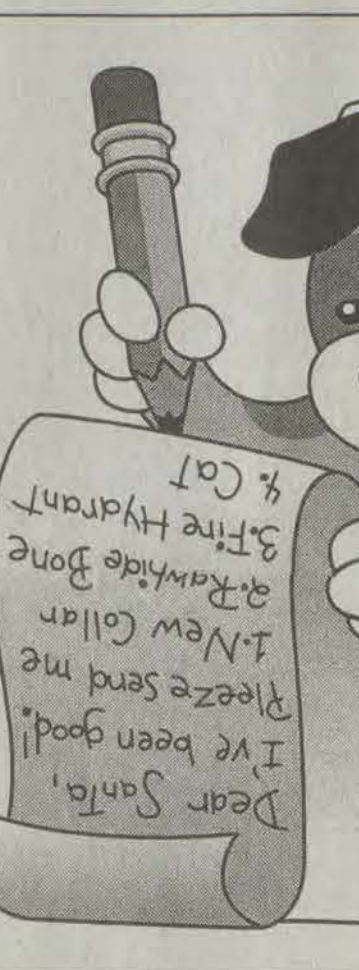 Dear Santa,
I've been good!
Pleeze send me
1. New Collar
2. Rawhide Bone
3. Fire Hydrant
4. Cat